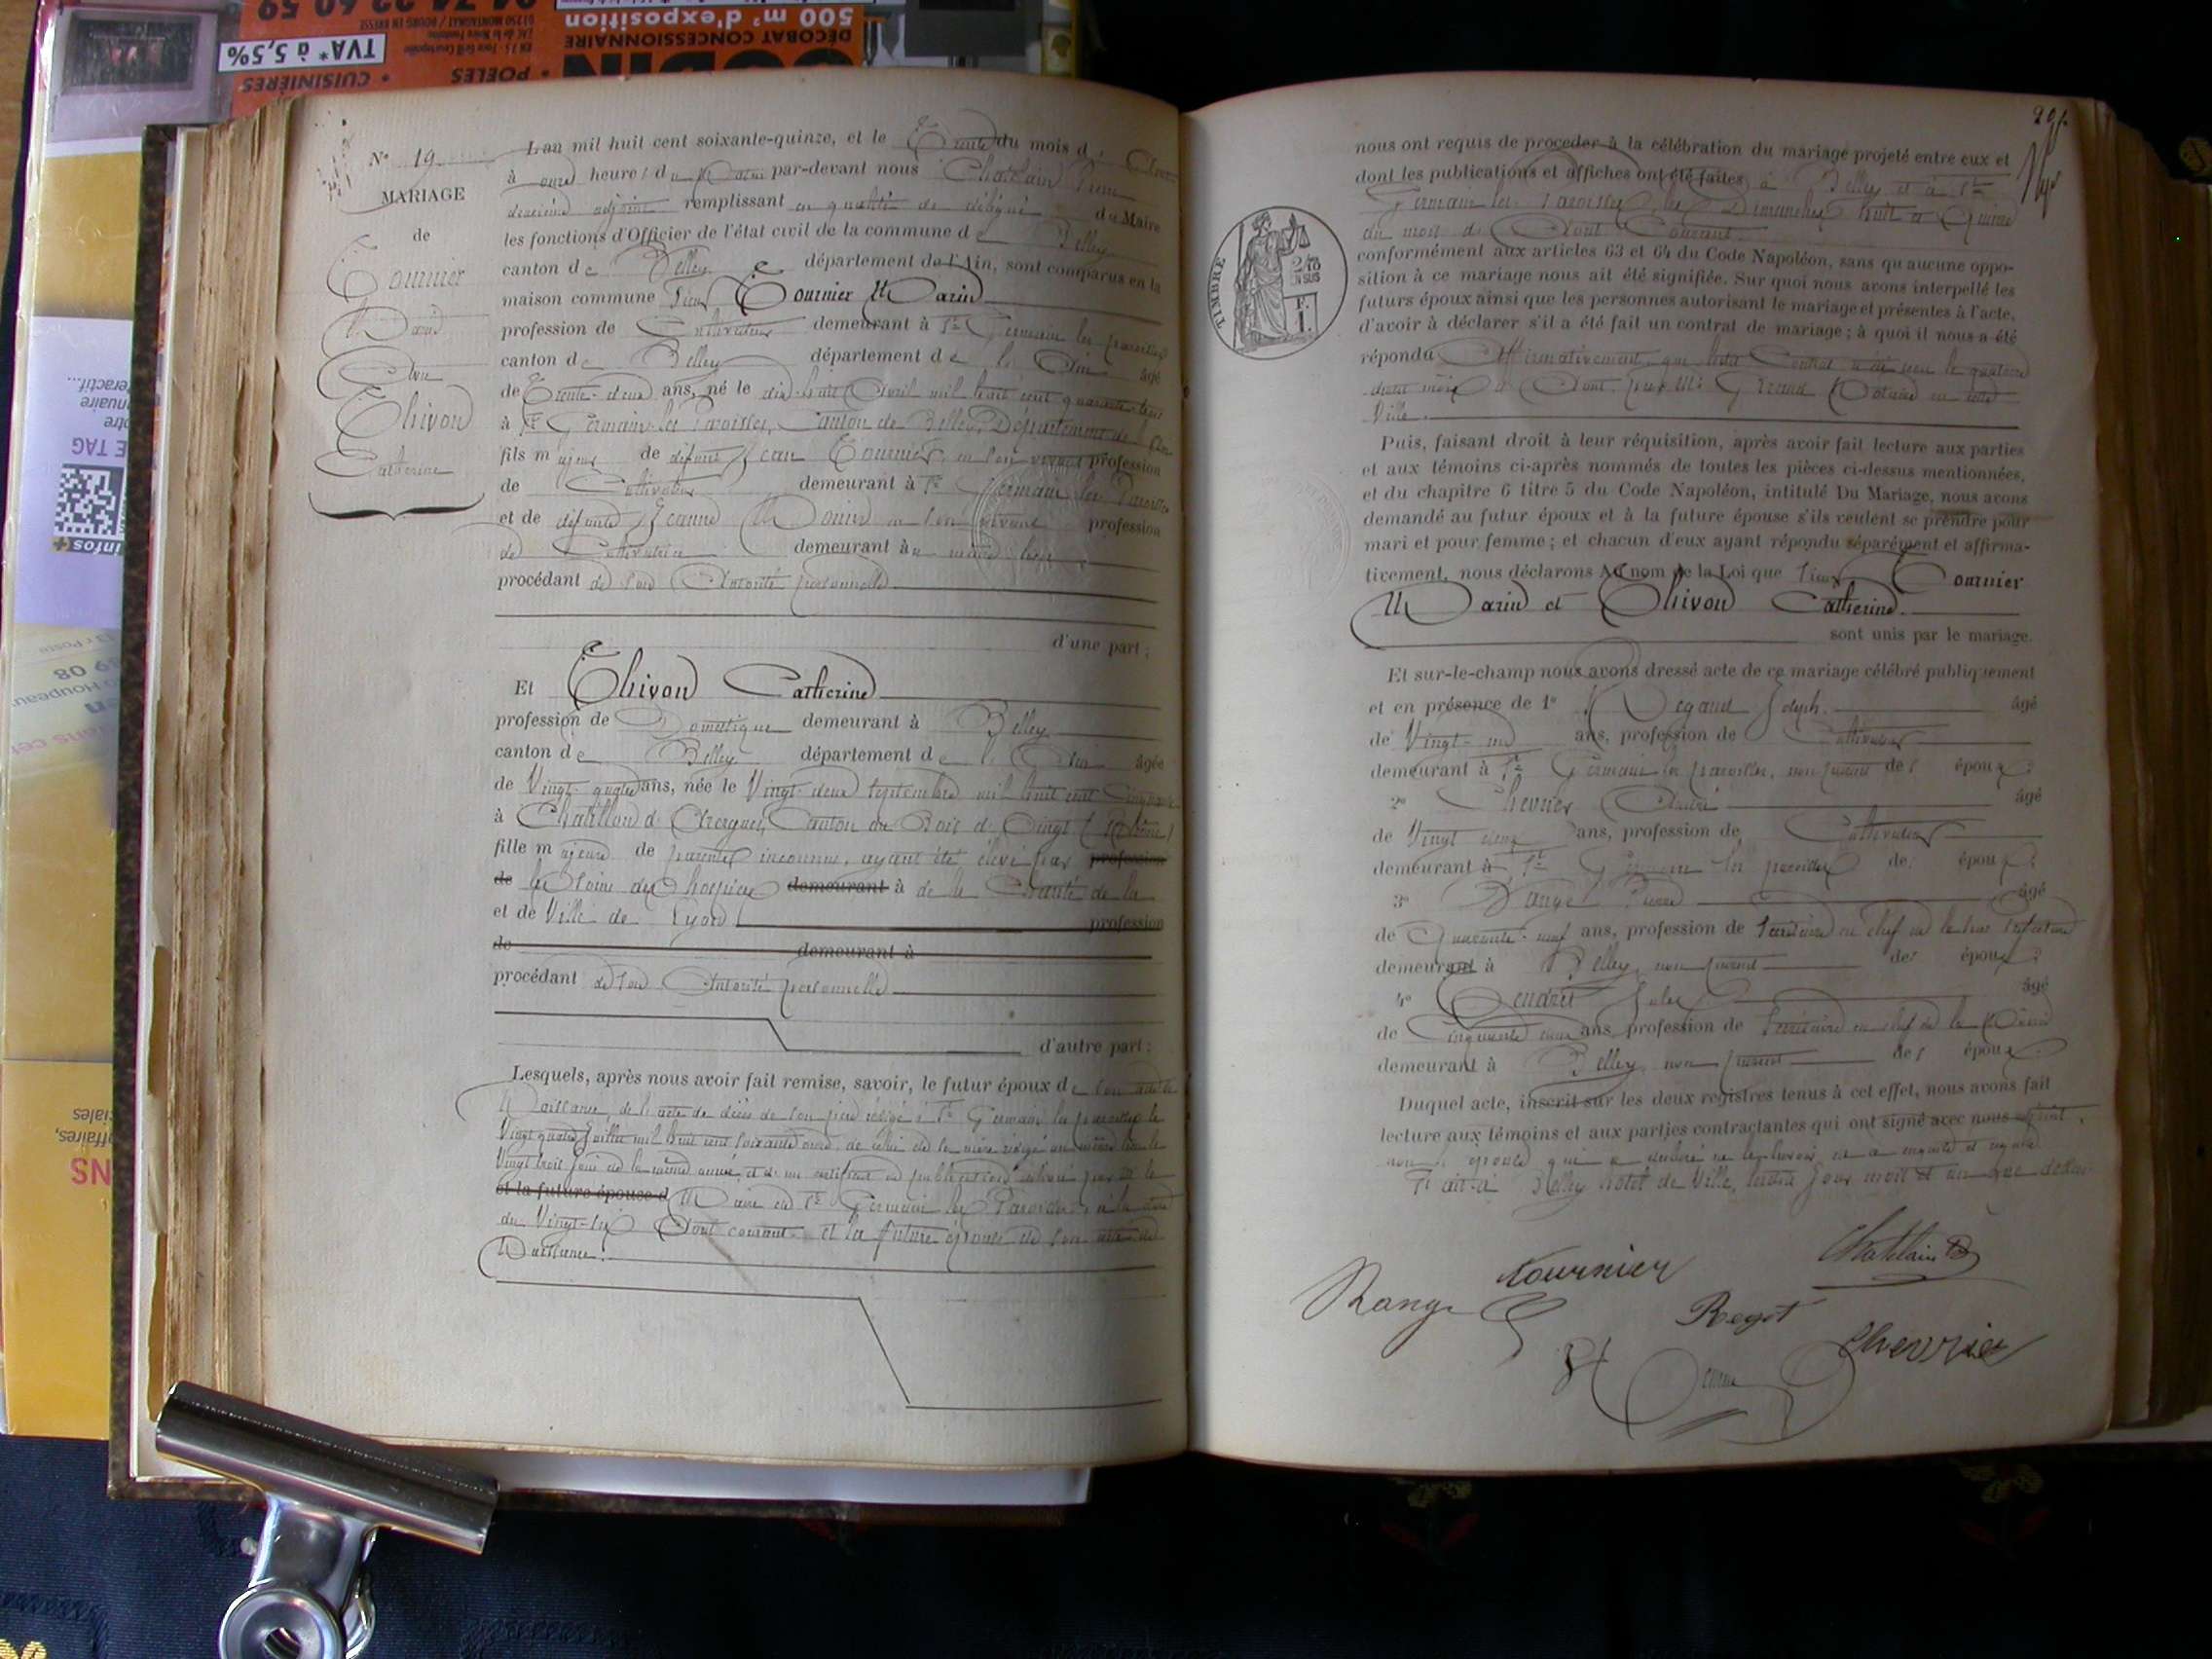 N° 19
MARIAGE
de
Tournier
Marin
et
Thivon
Catherine
L'an mil huit cent soixante-quinze, et le Trente du mois d' Août
à onze heures du Matin par-devant nous Chatelain
deuxième adjoint remplissant en qualité de délégué du Maire
les fonctions d'Officier de l'état civil de la commune de Belley
canton de Belley département de l'Ain, sont comparus en la
maison commune Sieur Tournier Marin
profession de Cultivateur demeurant à St Germain les paroisses
canton de Belley département de l'Ain âgé
de Trente-deux ans, né le dix-huit Avril mil huit cent quarante-trois
à St Germain les Paroisses, Canton de Belley, Département de l'Ain
fils majeur de défunt Jean Tournier, en son vivant profession
de Cultivateur demeurant à St Germain les Paroisses
et de défunte Jeanne en son vivant profession
de Cultivatrice demeurant au même lieu
procédant de son Autorité personnelle
d'une part ;
Et Thivon Catherine
profession de Domestique demeurant à Belley
canton de Belley département de l'Ain âgée
de Vingt-quatre ans, née le Vingt-deux septembre mil huit cent Cinquante
à Châtillon d'Azergues, Canton du Bois d'Oingt (Rhône)
fille majeure de parents inconnus, ayant été élevé par profession
de les Soins des hospices demeurant à de la Charité de la
et de Ville de Lyon profession
de demeurant à
procédant de son Autorité personnelle
d'autre part ;
Lesquels, après nous avoir fait remise, savoir, le futur époux de son acte de
Naissance, de l'acte de décès de son père rédigé à St Germain les paroisses le
Vingt quatre Juillet mil huit cent soixante onze, de celui de sa mère rédigé au même lieu le
Vingt trois Juin de la même année, et d'un certificat de publications délivré par Mr le
et la future épouse d Maire de St Germain les Paroisses à la date
du Vingt-six Août courant. et la future épouse de son acte de
Naissance.
201
nous ont requis de procéder à la célébration du mariage projeté entre eux et
dont les publications et affiches ont été faites à Belley et à St
Germain les Paroisses les Dimanches huit et Quinze
du mois d' Août Courant
conformément aux articles 63 et 64 du Code Napoléon, sans qu'aucune oppo-
sition à ce mariage nous ait été signifiée. Sur quoi nous avons interpellé les
futurs époux ainsi que les personnes autorisant le mariage et présentes à l'acte,
d'avoir à déclarer s'il a été fait un contrat de mariage ; à quoi il nous a été
répondu Affirmativement, que ledit Contrat a été reçu le quatorze
dudit mois d' Août, par Me Notaire en cette
Ville.
Puis, faisant droit à leur réquisition, après avoir fait lecture aux parties
et aux témoins ci-après nommés de toutes les pièces ci-dessus mentionnées,
et du chapitre 6 titre 5 du Code Napoléon, intitulé Du Mariage, nous avons
demandé au futur époux et à la future épouse s'ils veulent se prendre pour
mari et pour femme ; et chacun d'eux ayant répondu séparément et affirma-
tivement, nous déclarons Au nom de la Loi que Sieur Tournier
Marin et Thivon Catherine.
sont unis par le mariage.
Et sur-le-champ nous avons dressé acte de ce mariage célébré publiquement
et en présence de 1° Joseph. âgé
de Vingt-un ans, profession de Cultivateur
demeurant à St Germain les paroisses, non parent des époux ;
2° Chevrier André âgé
de Vingt deux ans, profession de Cultivateur
demeurant à St Germain les paroisses des époux ;
3° Pierre âgé
de Quarante-neuf ans, profession de Secrétaire en chef de la Sous Préfecture
demeurant à Belley non parent des époux ;
4° Jules âgé
de Cinquante ans, profession de Secrétaire en chef de la Mairie
demeurant à Belley, non parent des époux.
Duquel acte, inscrit sur les deux registres tenus à cet effet, nous avons fait
lecture aux témoins et aux parties contractantes qui ont signé avec nous
non l'épouse qui a déclaré ne le savoir, de ce enquise et requise
Fait à Belley hôtel de Ville, lesdits jour mois et an que dessus
TIMBRE
2/10
EN SUS
F.
1.
Chatelain
Tournier
Regot
Chevrier
CUISINIÈRES • POELES •
TVA* à 5,5%
DÉCOBAT CONCESSIONNAIRE
500 m² d'exposition
infos+